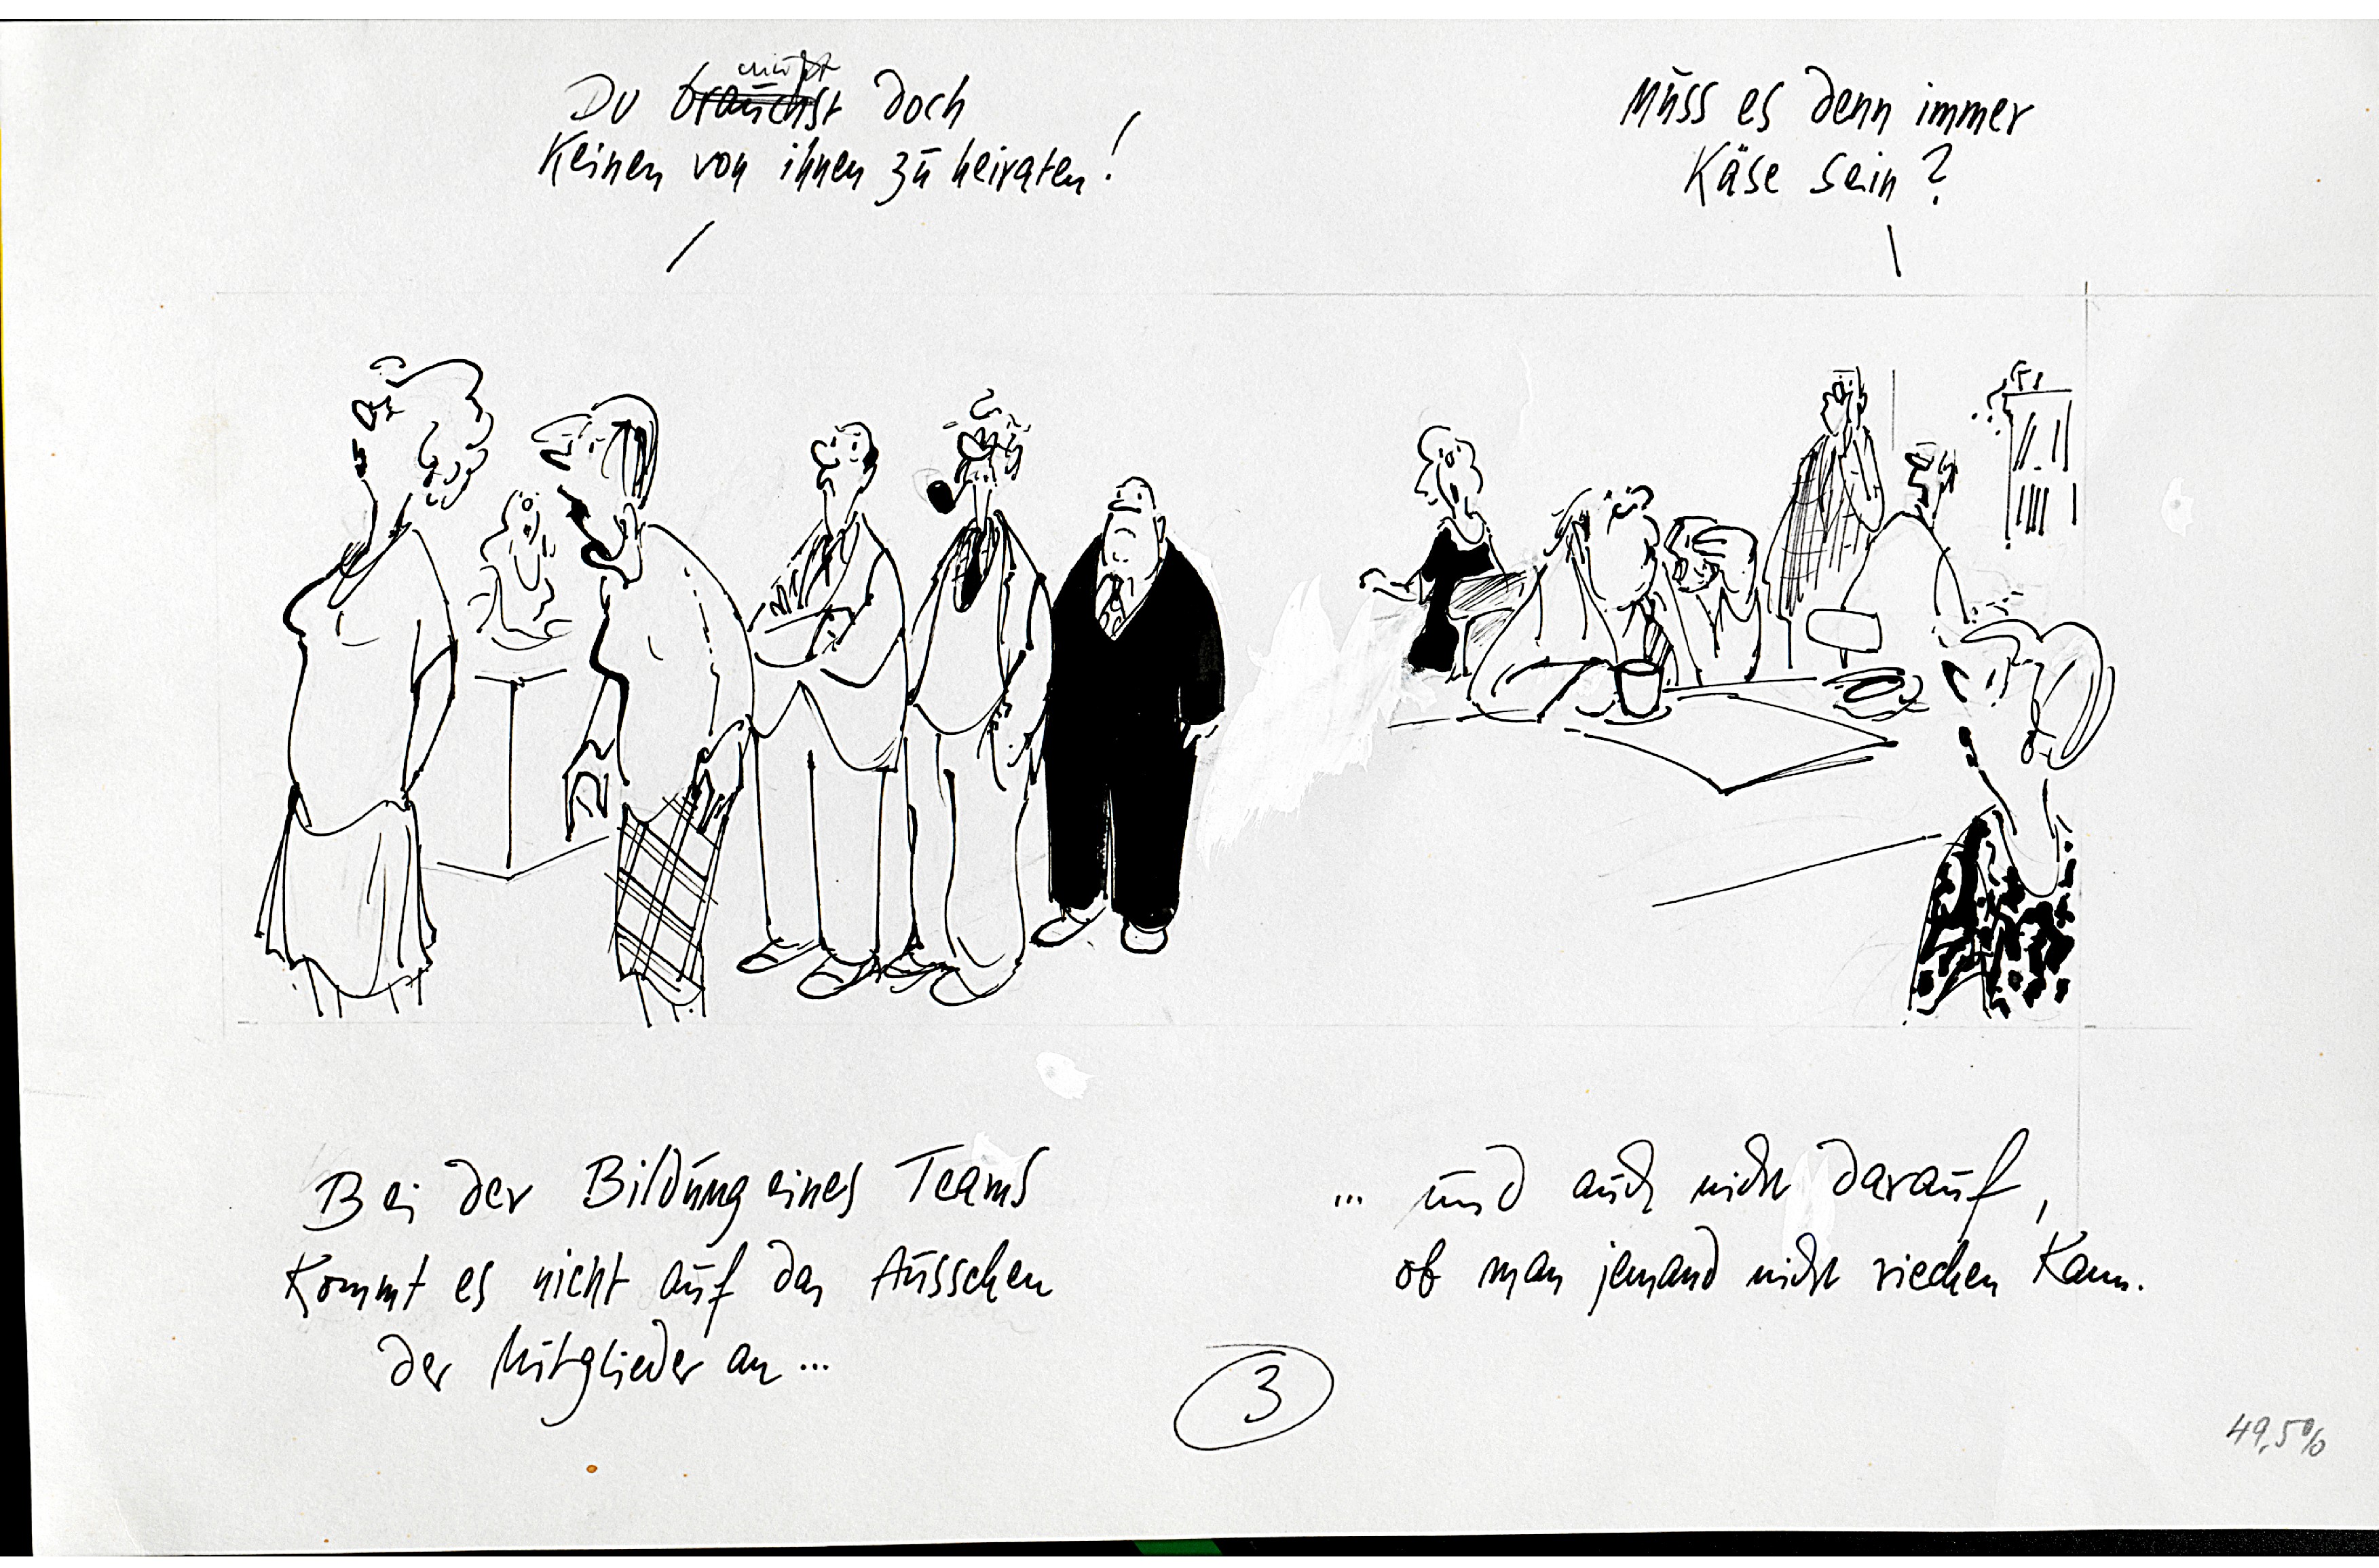 mußt
Du brauchst doch
Keinen von ihnen zu heiraten!
Muss es denn immer
Käse sein?
Bei der Bildung eines Teams
Kommt es nicht auf das Aussehen
der Mitglieder an...
... und auch nicht darauf,
ob man jemand nicht riechen Kann.
3
49,5%